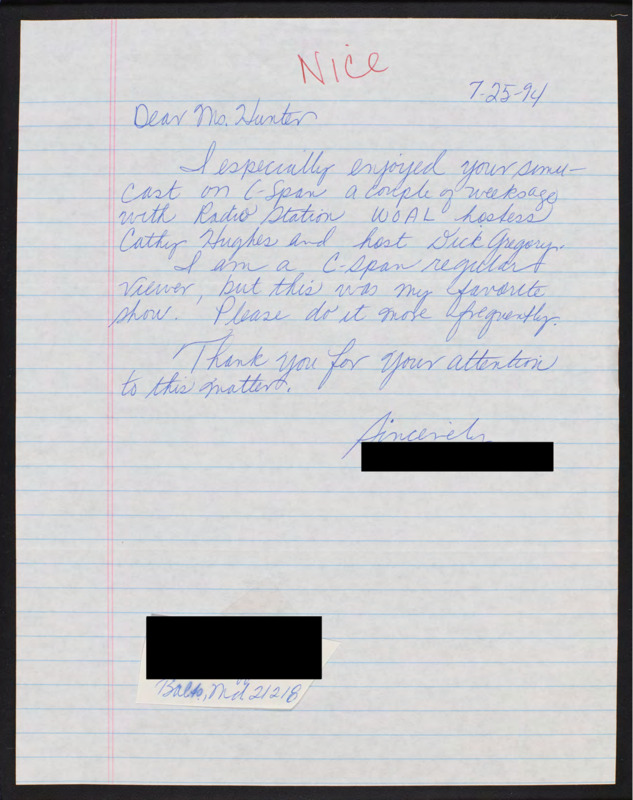 Nice
7-25-94
Dear Ms. Hunter
I especially enjoyed your simu-
cast on C-Span a couple of weeks ago
with Radio Station WOAL hostess
Cathy Hughes and host Dick Gregory.
I am a C-Span regular
viewer, but this was my favorite
show. Please do it more frequently.
Thank you for your attention
to this matter.
Sincerely
Balto, Md 21218